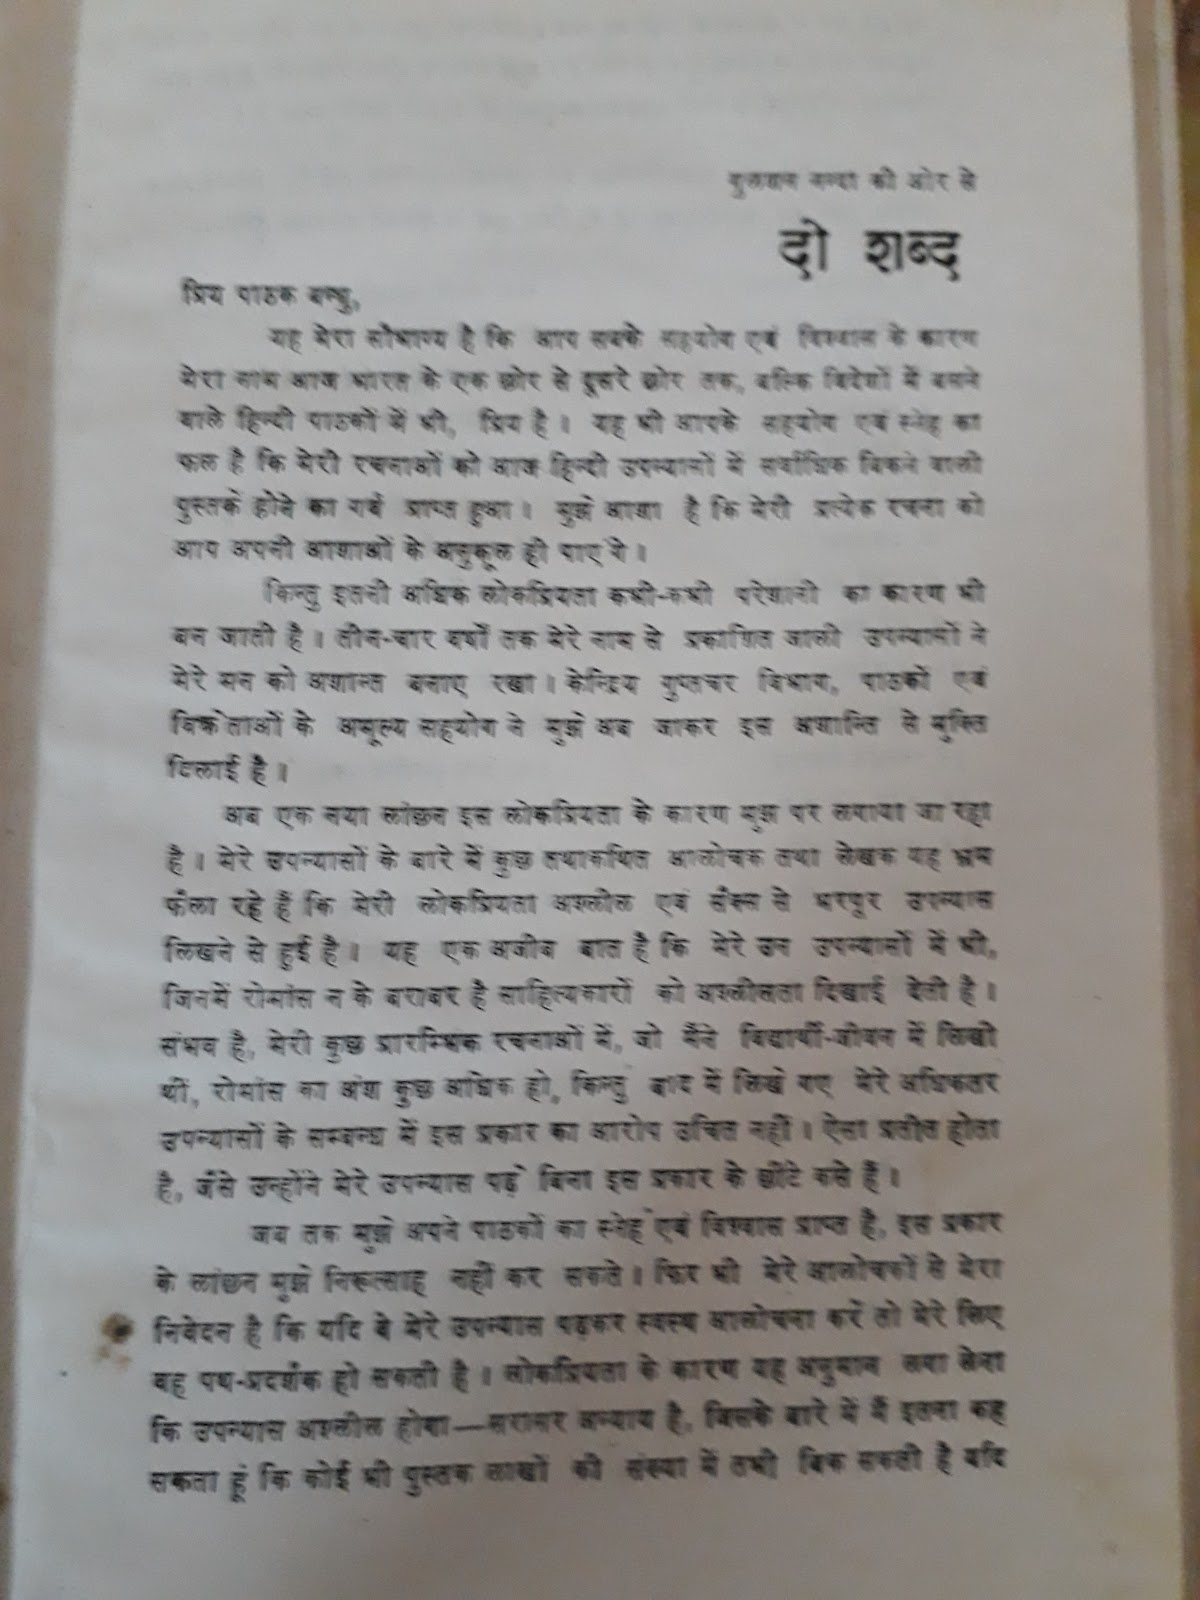 गुलशन नन्दा की ओर से
दो शब्द
प्रिय पाठक बन्धु,
यह मेरा सौभाग्य है कि आप सबके सहयोग एवं विश्वास के कारण
मेरा नाम आज भारत के एक छोर से दूसरे छोर तक, बल्कि विदेशों में बसने
वाले हिन्दी पाठकों में भी, प्रिय है। यह भी आपके सहयोग एवं स्नेह का
फल है कि मेरी रचनाओं को आज हिन्दी उपन्यासों में सर्वाधिक बिकने वाली
पुस्तकें होने का गर्व प्राप्त हुआ। मुझे आशा है कि मेरी प्रत्येक रचना को
आप अपनी आशाओं के अनुकूल ही पाएंगे।
किन्तु इतनी अधिक लोकप्रियता कभी-कभी परेशानी का कारण भी
बन जाती है। तीन-चार वर्षों तक मेरे नाम से प्रकाशित जाली उपन्यासों ने
मेरे मन को अशान्त बनाए रखा। केन्द्रिय गुप्तचर विभाग, पाठकों एवं
विक्रेताओं के अमूल्य सहयोग ने मुझे अब जाकर इस अशान्ति से मुक्ति
दिलाई है।
अब एक नया लांछन इस लोकप्रियता के कारण मुझ पर लगाया जा रहा
है। मेरे उपन्यासों के बारे में कुछ तथाकथित आलोचक तथा लेखक यह भ्रम
फैला रहे हैं कि मेरी लोकप्रियता अश्लील एवं सैक्स से भरपूर उपन्यास
लिखने से हुई है। यह एक अजीब बात है कि मेरे उन उपन्यासों में भी,
जिनमें रोमांस न के बराबर है साहित्यकारों को अश्लीलता दिखाई देती है।
संभव है, मेरी कुछ प्रारम्भिक रचनाओं में, जो मैंने विद्यार्थी-जीवन में लिखी
थीं, रोमांस का अंश कुछ अधिक हो, किन्तु बाद में लिखे गए मेरे अधिकतर
उपन्यासों के सम्बन्ध में इस प्रकार का आरोप उचित नहीं। ऐसा प्रतीत होता
है, जैसे उन्होंने मेरे उपन्यास पढ़े बिना इस प्रकार के छींटे कसे हैं।
जब तक मुझे अपने पाठकों का स्नेह एवं विश्वास प्राप्त है, इस प्रकार
के लांछन मुझे निरूत्साह नहीं कर सकते। फिर भी मेरे आलोचकों से मेरा
निवेदन है कि यदि वे मेरे उपन्यास पढ़कर स्वस्थ आलोचना करें तो मेरे लिए
वह पथ-प्रदर्शक हो सकती है। लोकप्रियता के कारण यह अनुमान लगा लेना
कि उपन्यास अश्लील होगा—सरासर अन्याय है, जिसके बारे में मैं इतना कह
सकता हूं कि कोई भी पुस्तक लाखों की संख्या में तभी बिक सकती है यदि